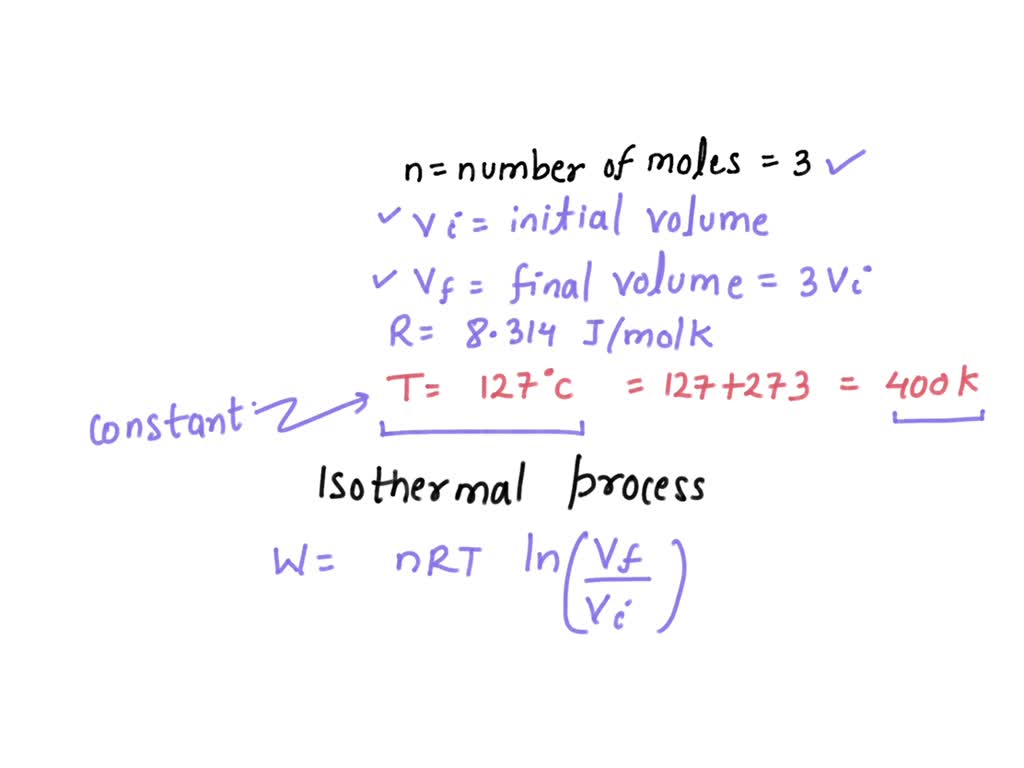 n = number of moles = 3 ✓
✓ Vi = initial volume
✓ Vf = final volume = 3Vi
R = 8.314 J/molk
T = 127°c = 127+273 = 400k
constant
Isothermal process
W = nRT ln(Vf/Vi)